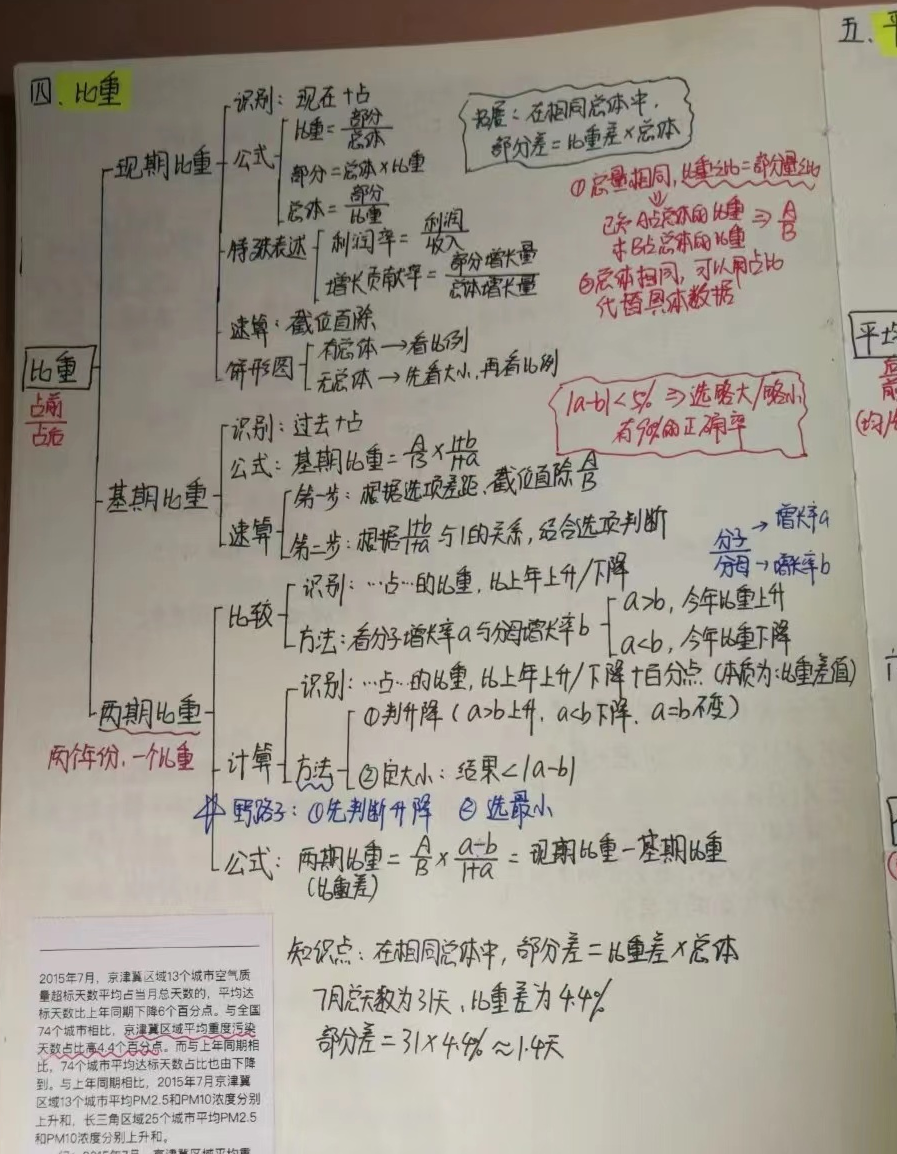 四、比重
识别：现在+占
现期比重
公式
比重=部分/总体
部分=总体×比重
总体=部分/比重
特殊表述
利润率=利润/收入
增长贡献率=部分增长量/总体增长量
速算：截位直除
饼形图
有总体→看比例
无总体→先看大小,再看比例
拓展：在相同总体中,
部分差=比重差×总体
①总量相同,比重之比=部分量之比
已知A占总体的比重
求B占总体的比重
⇒A/B
②总体相同,可以用占比
代替具体数据
比重
占前/占后
|a-b|<5% ⇒选略大/略小
有90%的正确率
基期比重
识别：过去+占
公式：基期比重=A/B×1+b/1+a
速算
第一步：根据选项差距、截位直除A/B
第二步：根据1+b/1+a与1的关系,结合选项判断
分子→增长率a
分母→增长率b
两期比重
两个年份、一个比重
比较
识别：…占…的比重,比上年上升/下降
方法：看分子增长率a与分母增长率b
a>b,今年比重上升
a<b,今年比重下降
计算
识别：…占…的比重,比上年上升/下降+百分点(本质为:比重差值)
方法
①判升降(a>b上升,a<b下降、a=b不变)
②定大小：结果<|a-b|
野路子：①先判断升降 ②选最小
公式：两期比重=A/B×a-b/1+a=现期比重-基期比重
(比重差)
知识点：在相同总体中,部分差=比重差×总体
7月总天数为31天、比重差为4.4%
部分差=31×4.4%≈1.4天
2015年7月，京津冀区域13个城市空气质
量超标天数平均占当月总天数的，平均达
标天数比上年同期下降6个百分点。与全国
74个城市相比，京津冀区域平均重度污染
天数占比高4.4个百分点。而与上年同期相
比，74个城市平均达标天数占比也由下降
到。与上年同期相比，2015年7月京津冀
区域13个城市平均PM2.5和PM10浓度分别
上升和，长三角区域25个城市平均PM2.5
和PM10浓度分别上升和。
五、平
平均
(均/